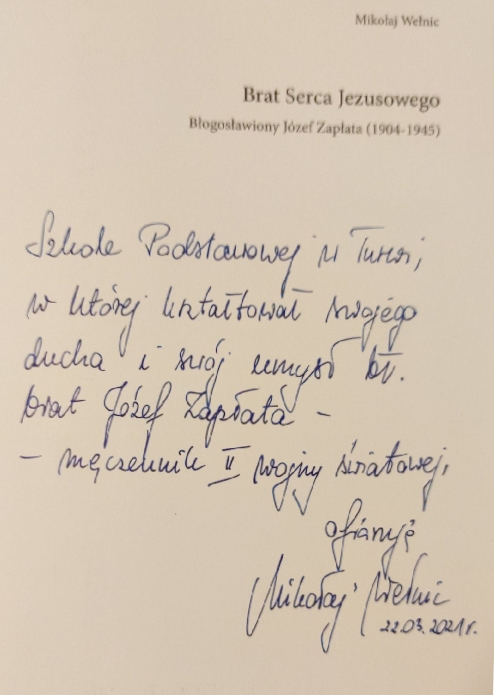 Mikołaj Wełnic
Brat Serca Jezusowego
Błogosławiony Józef Zapłata (1904-1945)
Szkole Podstawowej w Turwi,
w której kształtował swojego
ducha i swój umysł bł.
brat Józef Zapłata –
– męczennik II wojny światowej,
ofiaruję
Mikołaj Wełnic
22.03.2021r.